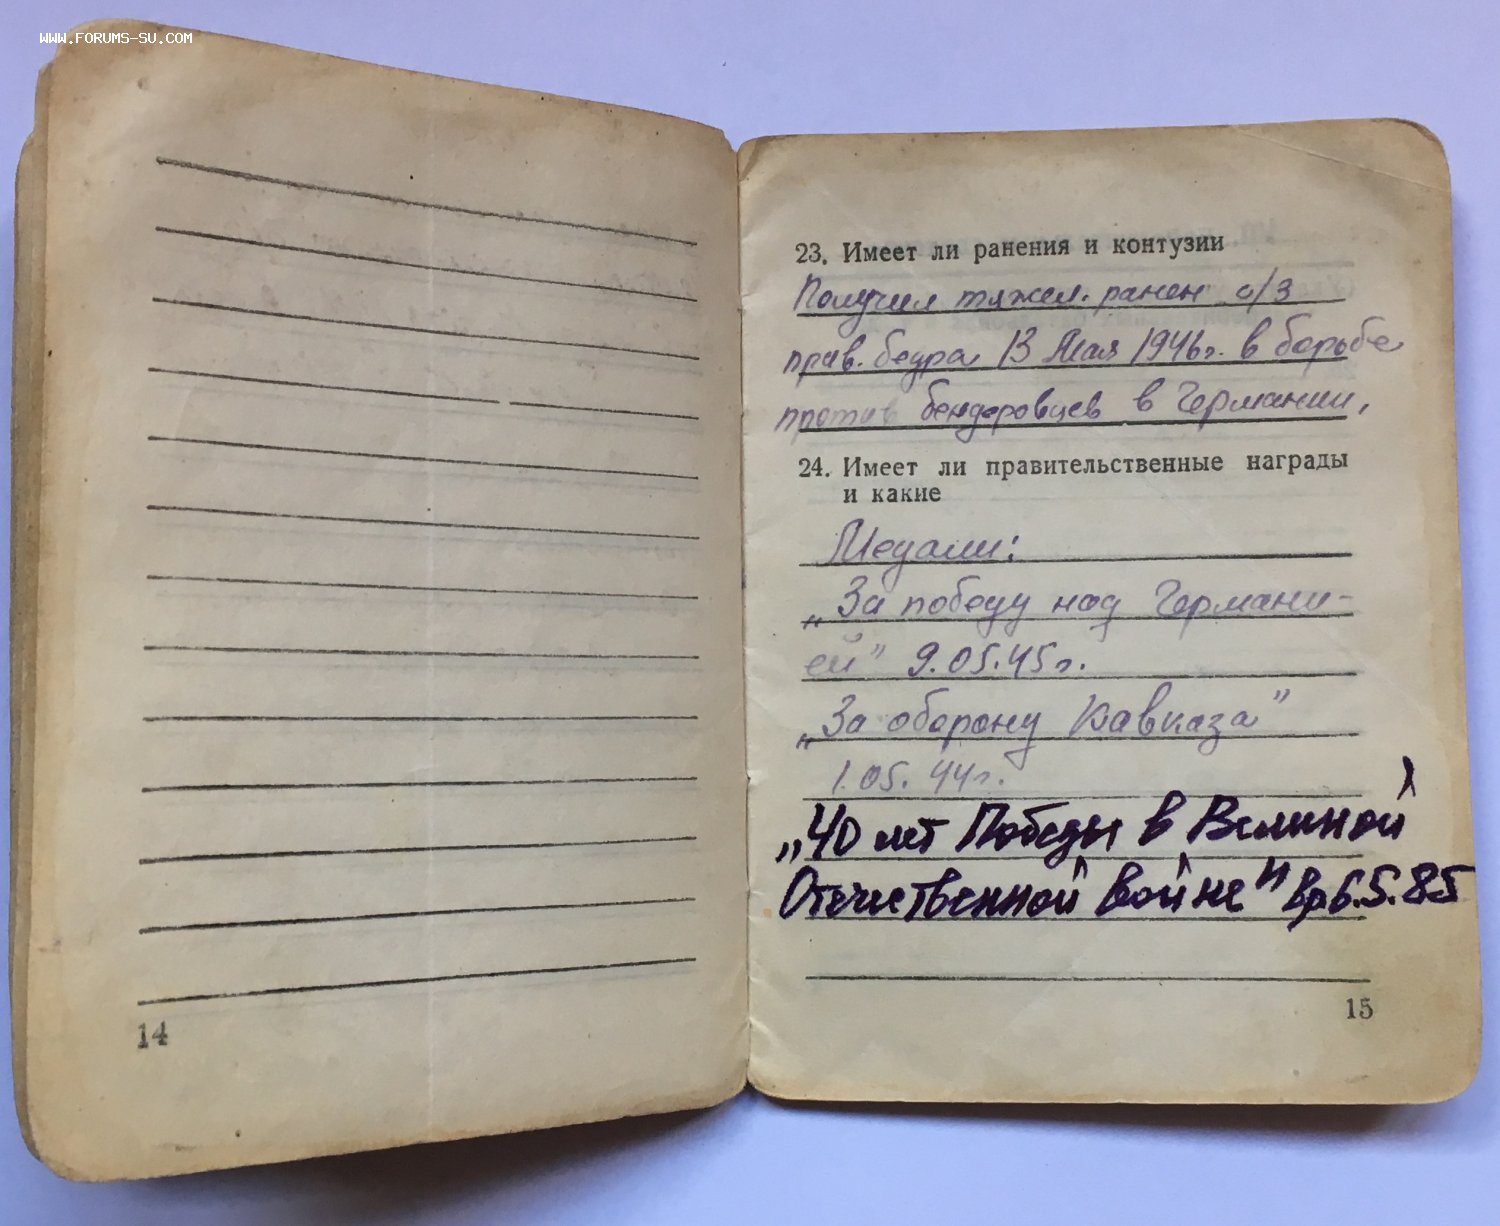 WWW.FORUMS-SU.COM
14
23. Имеет ли ранения и контузии
Получил тяжел. ранен о/з
прав. бедра 13 Мая 1946г. в борьбе
против бендеровцев в Германии,
24. Имеет ли правительственные награды
и какие
Медали:
„За победу над Германи-
ей" 9.05.45г.
„За оборону Кавказа"
1.05.44г.
„40 лет Победы в Великой
Отечественной войне" вр 6.5.85
15